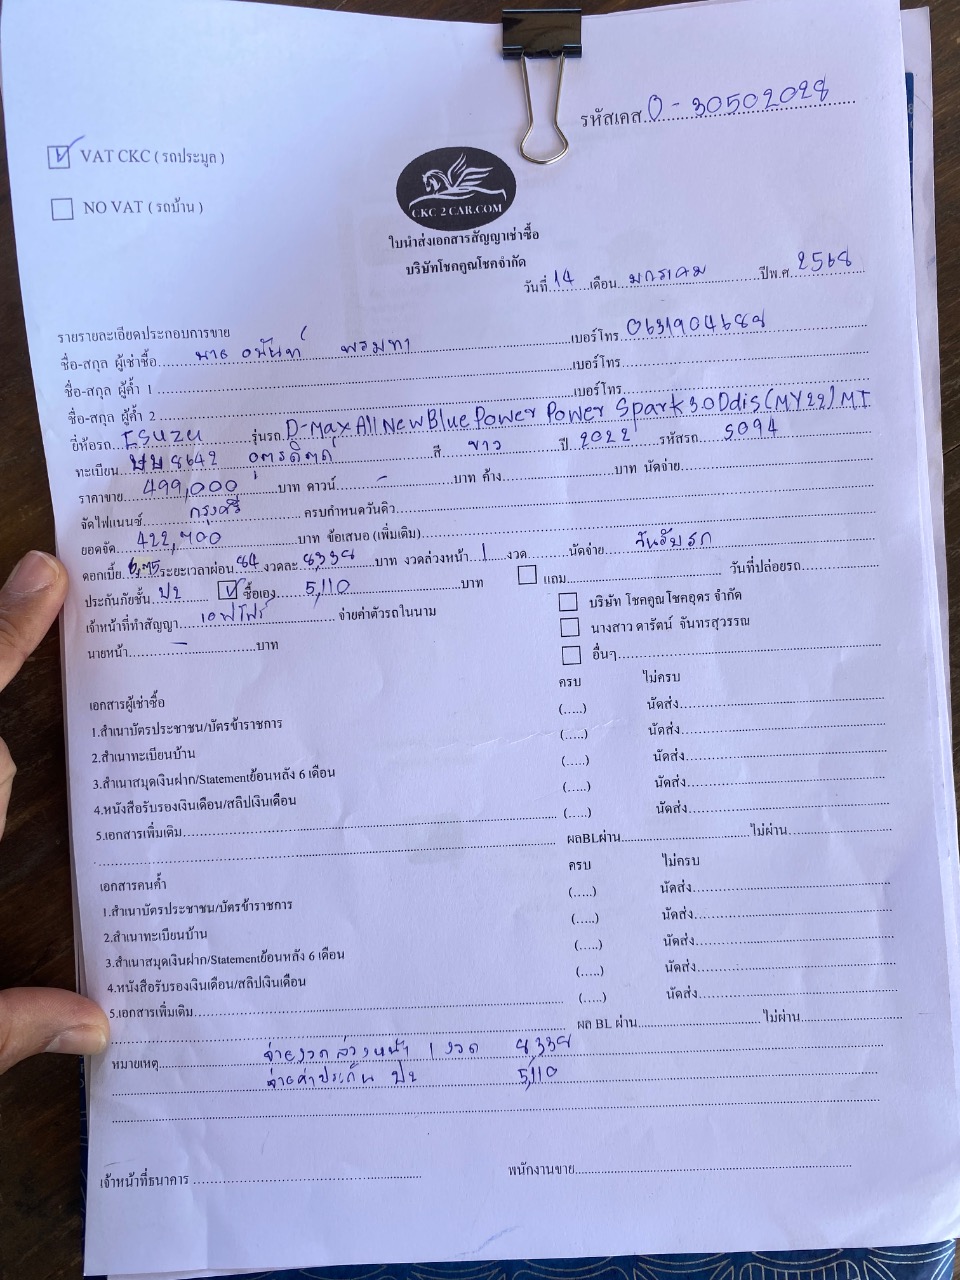 รหัสเคส O-30502028
VAT CKC ( รถประมูล )
NO VAT ( รถบ้าน )
CKC 2 CAR.COM
ใบนำส่งเอกสารสัญญาเช่าซื้อ
บริษัทโชคคูณโชคจำกัด
วันที่ 14 เดือน มกราคม ปีพ.ศ. 2568
รายรายละเอียดประกอบการขาย
ชื่อ-สกุล ผู้เช่าซื้อ นาย อนันท์ พรมทา เบอร์โทร 0631904688
ชื่อ-สกุล ผู้ค้ำ 1 เบอร์โทร
ชื่อ-สกุล ผู้ค้ำ 2 เบอร์โทร
ยี่ห้อรถ Isuzu รุ่นรถ D-Max All New Blue Power Power Spark 3.0 Ddis (MY22) MT
ทะเบียน 8642 อุตรดิตถ์ สี ขาว ปี 2022 รหัสรถ 5094
ราคาขาย 499,000 บาท ดาวน์ - บาท ค้าง บาท นัดจ่าย
จัดไฟแนนซ์ กรุงศรี ครบกำหนดวันคิว
ยอดจัด 422,700 บาท ข้อเสนอ (เพิ่มเติม)
ดอกเบี้ย 6.75 ระยะเวลาผ่อน 84 งวดละ 8338 บาท งวดล่วงหน้า 1 งวด นัดจ่าย วันรับรถ
ประกันภัยชั้น ป2 ซื้อเอง 5,110 บาท แถม วันที่ปล่อยรถ
เจ้าหน้าที่ทำสัญญา เอฟโฟร์ จ่ายค่าตัวรถในนาม บริษัท โชคคูณโชคอุดร จำกัด
นางสาว ดารัตน์ จันทรสุวรรณ
นายหน้า - บาท อื่นๆ
เอกสารผู้เช่าซื้อ ครบ ไม่ครบ
1.สำเนาบัตรประชาชน/บัตรข้าราชการ (.....) นัดส่ง
2.สำเนาทะเบียนบ้าน (.....) นัดส่ง
3.สำเนาสมุดเงินฝาก/Statementย้อนหลัง 6 เดือน (.....) นัดส่ง
4.หนังสือรับรองเงินเดือน/สลิปเงินเดือน (.....) นัดส่ง
5.เอกสารเพิ่มเติม (.....) นัดส่ง
ผลBLผ่าน ไม่ผ่าน
เอกสารคนค้ำ ครบ ไม่ครบ
1.สำเนาบัตรประชาชน/บัตรข้าราชการ (.....) นัดส่ง
2.สำเนาทะเบียนบ้าน (.....) นัดส่ง
3.สำเนาสมุดเงินฝาก/Statementย้อนหลัง 6 เดือน (.....) นัดส่ง
4.หนังสือรับรองเงินเดือน/สลิปเงินเดือน (.....) นัดส่ง
5.เอกสารเพิ่มเติม (.....) นัดส่ง
ผล BL ผ่าน ไม่ผ่าน
หมายเหตุ จ่ายงวดล่วงหน้า 1 งวด 8,338
จ่ายค่าประกัน ป2 5,110
เจ้าหน้าที่ธนาคาร พนักงานขาย